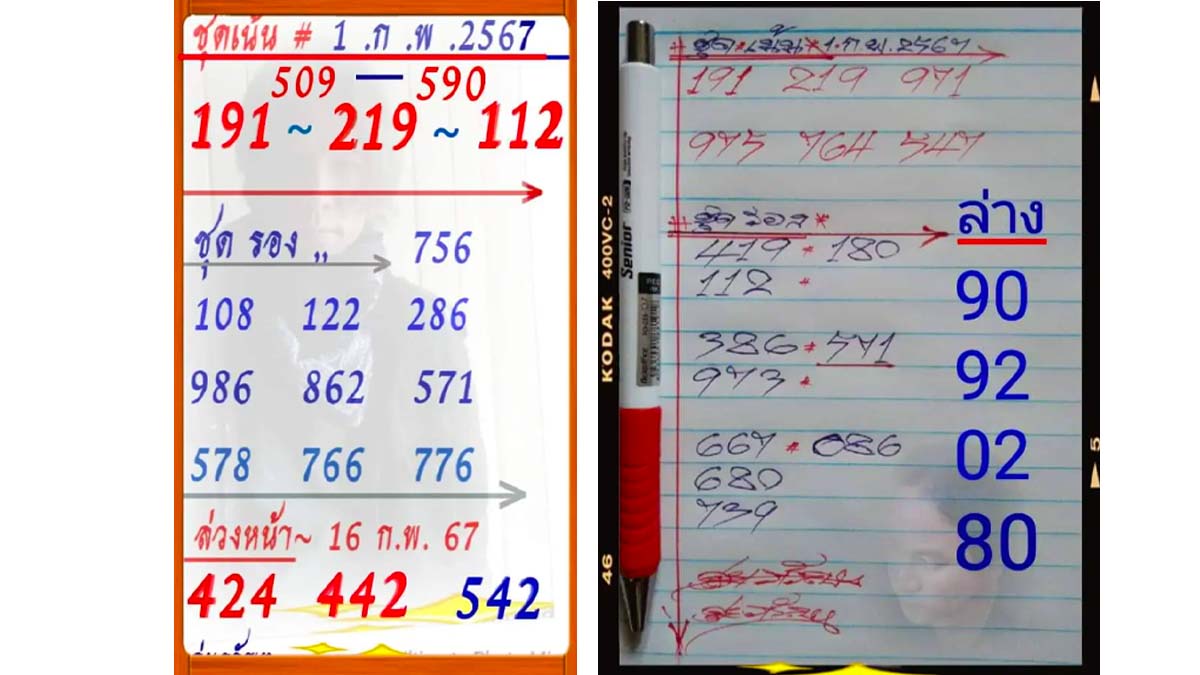 ชุดเน้น # 1 .ก .พ .2567
509 — 590
191 ~ 219 ~ 112
ชุด รอง ,, 756
108 122 286
986 862 571
578 766 776
ล่วงหน้า~ 16 ก.พ. 67
424 442 542
# ชุด * เน้น * 1 ก.พ. 2567
191 219 971
975 764 547
# ชุด รอง *
419 * 180
112 *
386 * 571
973 *
667 * 086
680
739
ล่าง
90
92
02
80
Senior
KODAK 400VC-2
46
5